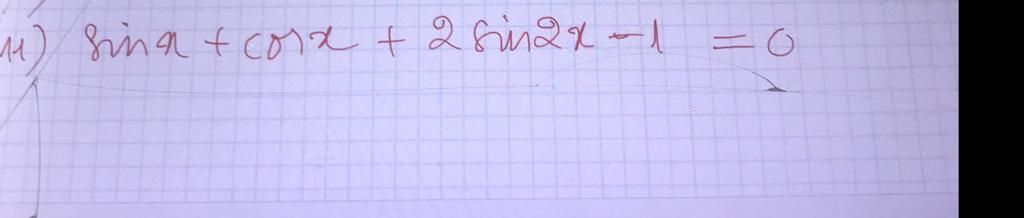 11) sinx + cosx + 2 sin2x - 1 = 0